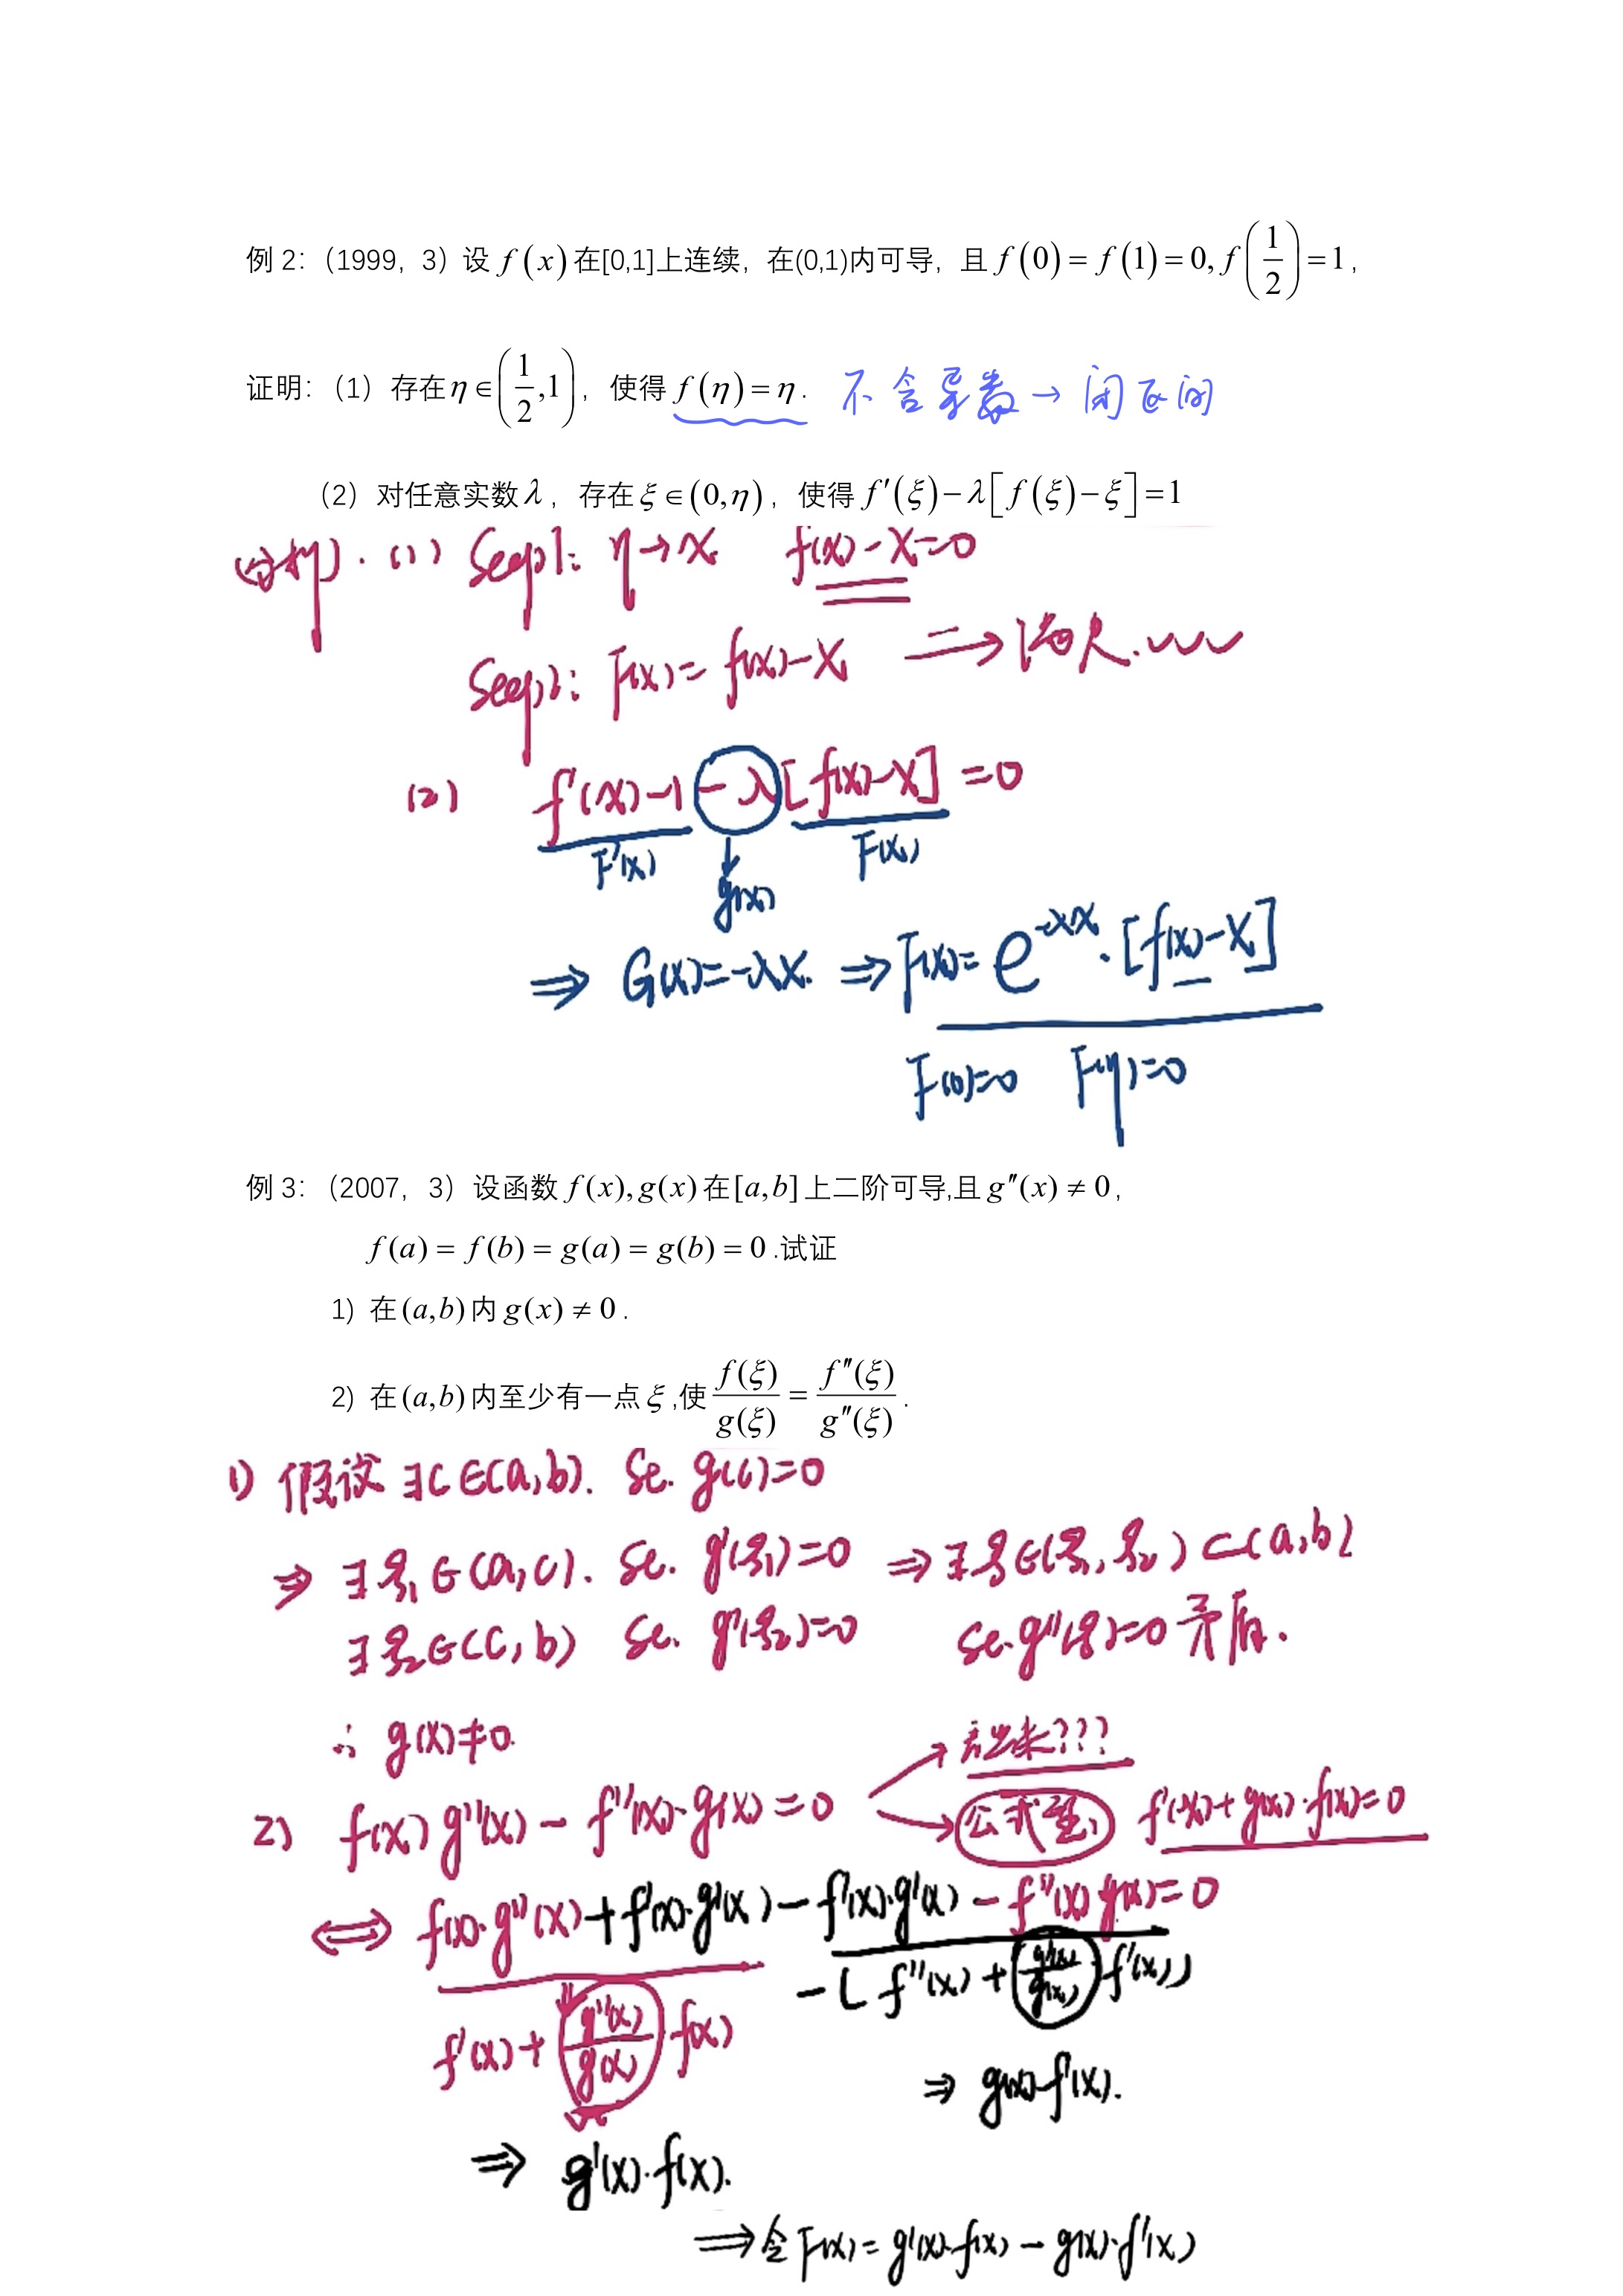 例 2：（1999，3）设 f(x) 在[0,1]上连续，在(0,1)内可导，且 f(0) = f(1) = 0, f(1/2) = 1，
证明：（1）存在 η ∈ (1/2, 1)，使得 f(η) = η. 不含导数 → 闭区间
（2）对任意实数 λ，存在 ξ ∈ (0,η)，使得 f′(ξ) − λ[f(ξ) − ξ] = 1
分析. (1) Seep1: η→x f(x)-x=0
Seep2: F(x)= f(x)-x ⇒
(2) f'(x)-1 -λ[f(x)-x] =0
F'(x) g(x) F(x)
⇒ G(x)=-λx. ⇒ F(x)= e^{-λx}·[f(x)-x]
F(0)=0 F(η)=0
例 3：（2007，3）设函数 f(x), g(x) 在[a,b] 上二阶可导,且 g″(x) ≠ 0，
f(a) = f(b) = g(a) = g(b) = 0 .试证
1) 在(a,b)内 g(x) ≠ 0 .
2) 在(a,b)内至少有一点 ξ ,使 f(ξ)/g(ξ) = f″(ξ)/g″(ξ) .
1) 假设 ∃c∈(a,b). St. g(c)=0
⇒ ∃ξ₁∈(a,c). St. g'(ξ₁)=0 ⇒ ∃ξ∈(ξ₁,ξ₂)⊂(a,b)
∃ξ₂∈(c,b) St. g'(ξ₂)=0 St. g''(ξ)=0 矛盾.
∴ g(x)≠0.
看出来???
2) f(x)g''(x) - f''(x)·g(x)=0 公式型 f'(x)+g(x)·f(x)=0
⇔ f(x)·g''(x)+f'(x)·g'(x)-f'(x)·g'(x)-f''(x)g(x)=0
-(f''(x)+ g'(x)/g(x) f'(x))
f'(x)+ g''(x)/g'(x) f(x)
⇒ g(x)·f'(x).
⇒ g'(x)·f(x).
⇒令F(x)= g'(x)·f(x) - g(x)·f'(x)